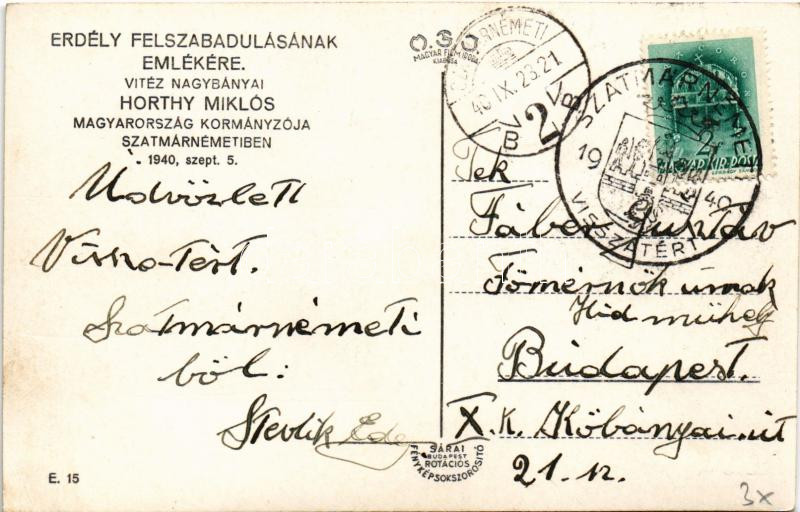 ERDÉLY FELSZABADULÁSÁNAK
EMLÉKÉRE.
VITÉZ NAGYBÁNYAI
HORTHY MIKLÓS
MAGYARORSZÁG KORMÁNYZÓJA
SZATMÁRNÉMETIBEN
1940, szept. 5.
Üdvözlett
Vissza-tért.
Szatmárnémeti
ből:
Stevlik Ede
E. 15
MAGYAR FILM IRODA
KIADÁSA
40 IX. 23. 21
2
SZATMÁRNÉMETI
19 40
VISSZATÉRT
MAGY. KIR. POSTA
Tek
Fáber Gusztáv
Főmérnök úrnak
Híd műhely
Budapest.
X. k. Kőbányai út
21. sz.
SÁRAI
BUDAPEST
ROTÁCIÓS
FÉNYKÉPSOKSZOROSÍTÓ
3x